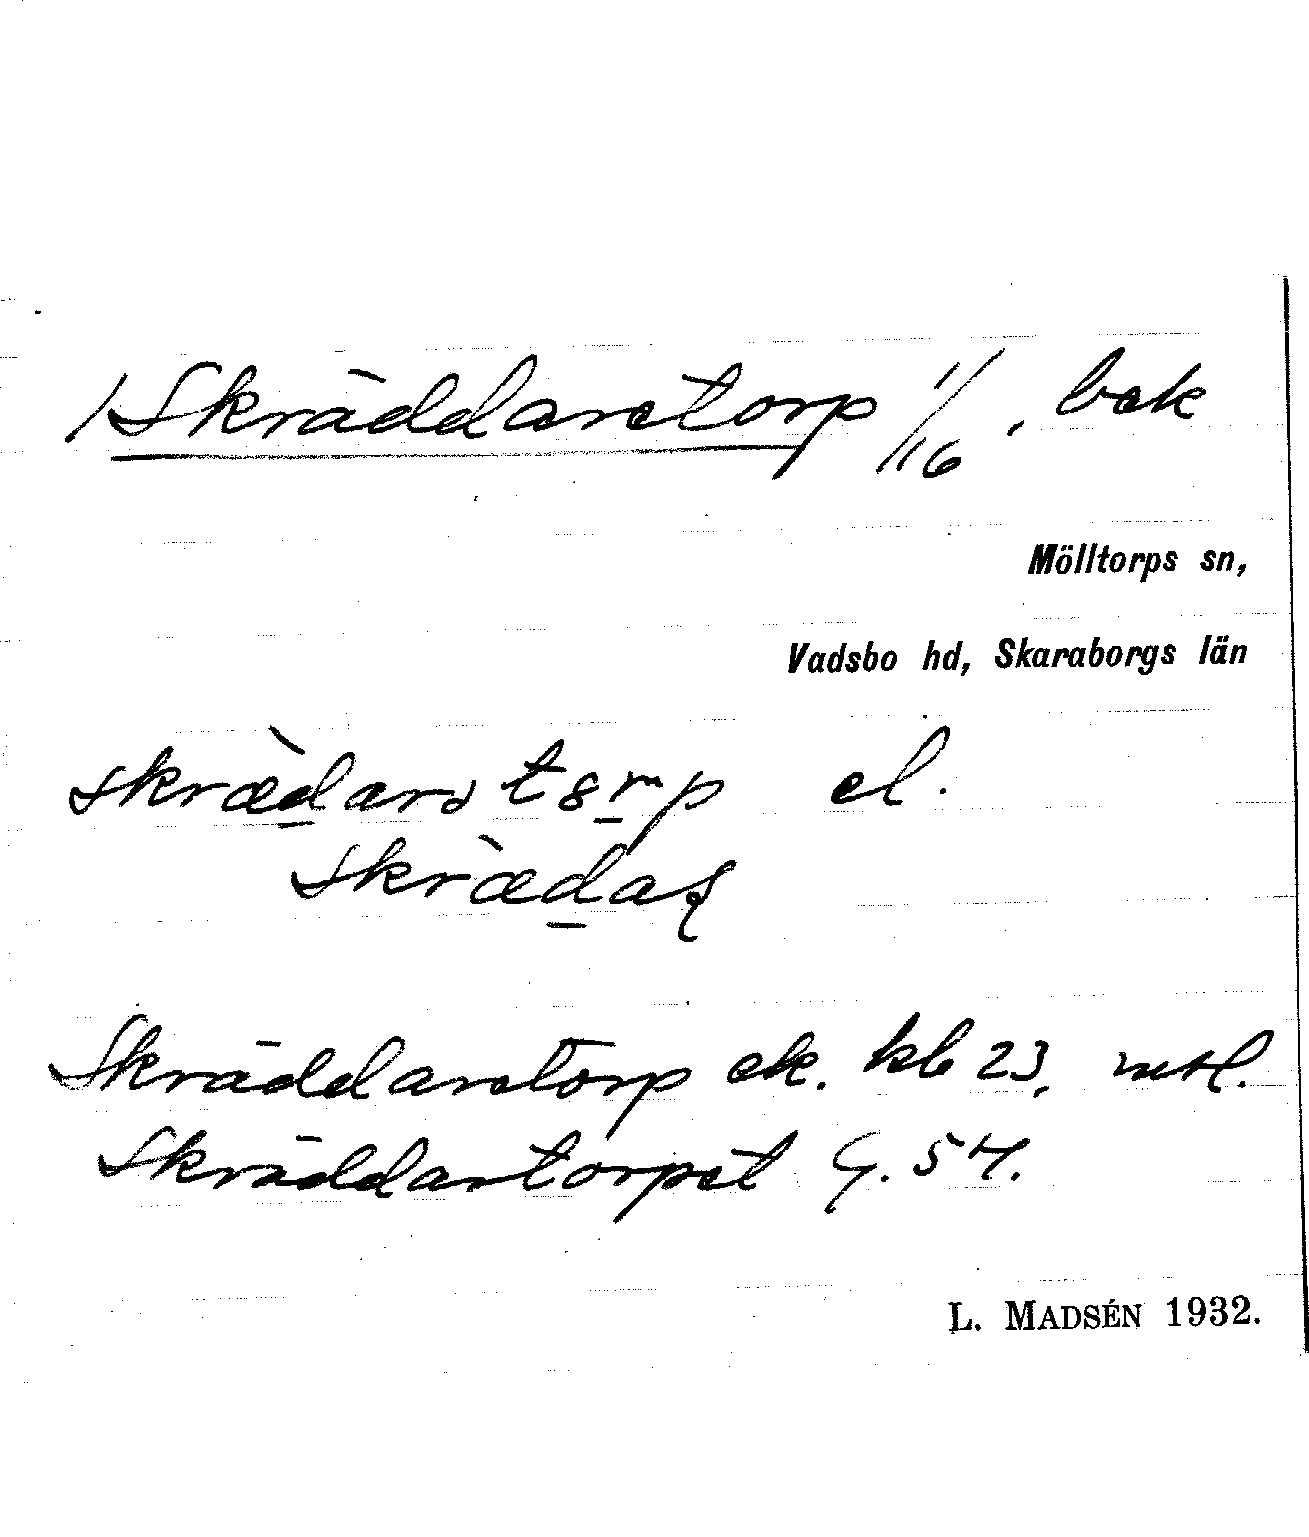 /Skräddaretorp 1/16, bek
Mölltorps sn,
Vadsbo hd, Skaraborgs län
skrædarətɞrp el.
skrædaʂ
Skräddaretorp ek. kb 23, mtl.
Skräddartorpet G. 54.
L. MADSÉN 1932.